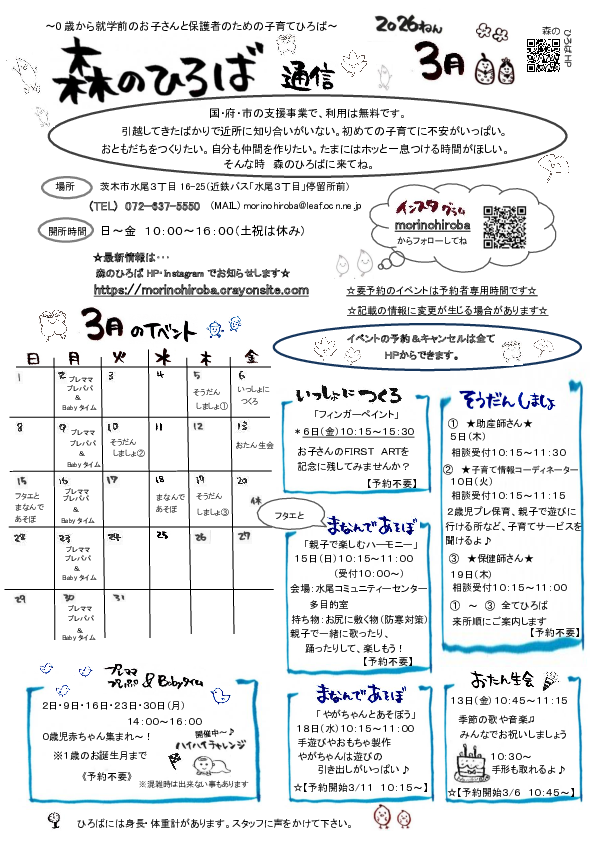 ～0歳から就学前のお子さんと保護者のための子育てひろば～
2026ねん
森のひろば 通信
3月
森の
ひろばHP
国・府・市の支援事業で、利用は無料です。
引越してきたばかりで近所に知り合いがいない。初めての子育てに不安がいっぱい。
おともだちをつくりたい。自分も仲間を作りたい。たまにはホッと一息つける時間がほしい。
そんな時 森のひろばに来てね。
場所 茨木市水尾3丁目16-25(近鉄バス「水尾3丁目」停留所前)
(TEL) 072-637-5550 (MAIL) morinohiroba@leaf.ocn.ne.jp
開所時間 日～金 10:00～16:00(土祝は休み)
インスタグラム
morinohiroba
からフォローしてね
★最新情報は・・・
森のひろば HP・instagram でお知らせします★
https://morinohiroba.crayonsite.com
☆要予約のイベントは予約者専用時間です☆
☆記載の情報に変更が生じる場合があります☆
イベントの予約&キャンセルは全て
HPからできます。
3月のイベント
日 月 火 水 木 金
1 2 3 4 5 6
プレママ
プレパパ
&
Babyタイム
そうだん
しましょ①
いっしょに
つくろ
8 9 10 11 12 13
プレママ
プレパパ
&
Babyタイム
そうだん
しましょ②
おたん生会
15 16 17 18 19 20
フタエと
まなんで
あそぼ
プレママ
プレパパ
&
Babyタイム
まなんで
あそぼ
そうだん
しましょ③
休
22 23 24 25 26 27
プレママ
プレパパ
&
Babyタイム
29 30 31
プレママ
プレパパ
&
Babyタイム
いっしょにつくろ
「フィンガーペイント」
*6日(金)10:15～15:30
お子さんのFIRST ARTを
記念に残してみませんか?
【予約不要】
そうだんしましょ
① ★助産師さん★
5日(木)
相談受付10:15～11:30
② ★子育て情報コーディネーター
10日(火)
相談受付10:15～11:15
2歳児プレ保育、親子で遊びに
行ける所など、子育てサービスを
聞けるよ♪
③ ★保健師さん★
19日(木)
相談受付10:15～11:00
① ～ ③ 全てひろば
来所順にご案内します
【予約不要】
フタエと
まなんであそぼ
「親子で楽しむハーモニー」
15日(日)10:15～11:00
(受付10:00～)
会場:水尾コミュニティーセンター
多目的室
持ち物:お尻に敷く物(防寒対策)
親子で一緒に歌ったり、
踊ったりして、楽しもう!
【予約不要】
プレママ
プレパパ &Babyタイム
2日・9日・16日・23日・30日(月)
14:00～16:00
0歳児赤ちゃん集まれ～!
※1歳のお誕生月まで
《予約不要》
開催中～♪
ハイハイチャレンジ
※混雑時は出来ない事もあります
まなんであそぼ
「やがちゃんとあそぼう」
18日(水)10:15～11:00
手遊びやおもちゃ製作
やがちゃんは遊びの
引き出しがいっぱい♪
☆【予約開始3/11 10:15～】
おたん生会
13日(金)10:45～11:15
季節の歌や音楽♫
みんなでお祝いしましょう
10:30～
手形も取れるよ♪
☆【予約開始3/6 10:45～】
ひろばには身長・体重計があります。スタッフに声をかけて下さい。